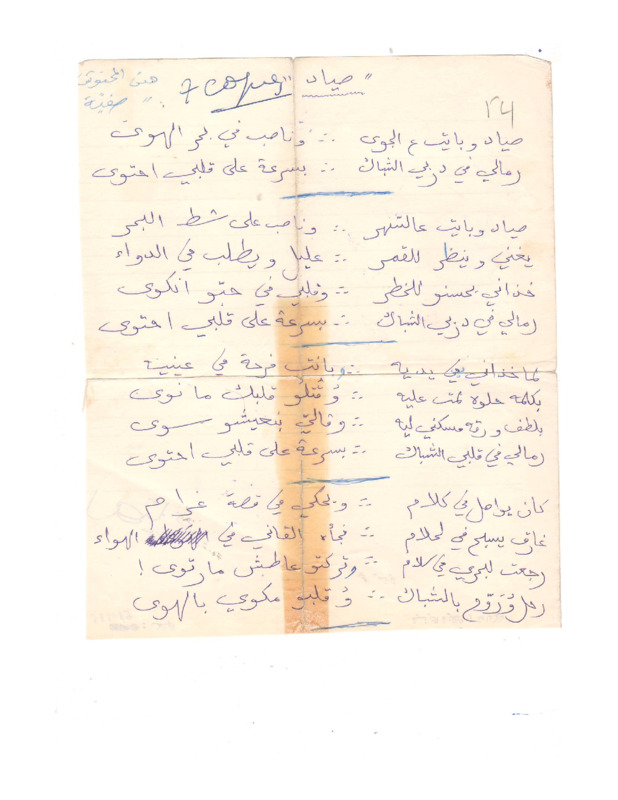 "صياد"
٢٤
صياد وبايت ع الجوى ∴ وناصب في بحر الهوى
رمالي في دربي الشباك ∴ بسرعة على قلبي احتوى
صياد وبايت عالنهر ∴ وناصب على شط البحر
يغني وينظر للقمر ∴ عليل ويطلب في الدواء
خذاني بحسنو للخطر ∴ وقلبي في حبو انكوى
رمالي في دربي الشباك ∴ بسرعة على قلبي احتوى
لما خذاني في يديه ∴ وبانت فرحة في عينيه
بكلمه حلوة لمت عليه ∴ وقتلو قلبك ما نوى
بلطف ورقه مسكني ليه ∴ وقالي بنعيشو سوى
رمالي في قلبي الشباك ∴ بسرعة على قلبي احتوى
كان يواصل في كلام ∴ ويحكي في قصة غرام
غارق يسبح في لحلام ∴ فجأه القاني في الهواء
رجعت لبحري في سلام ∴ وتركتو عاطش ما رتوى !
رحل وروح بالشباك ∴ وقلبو مكوي بالهوى